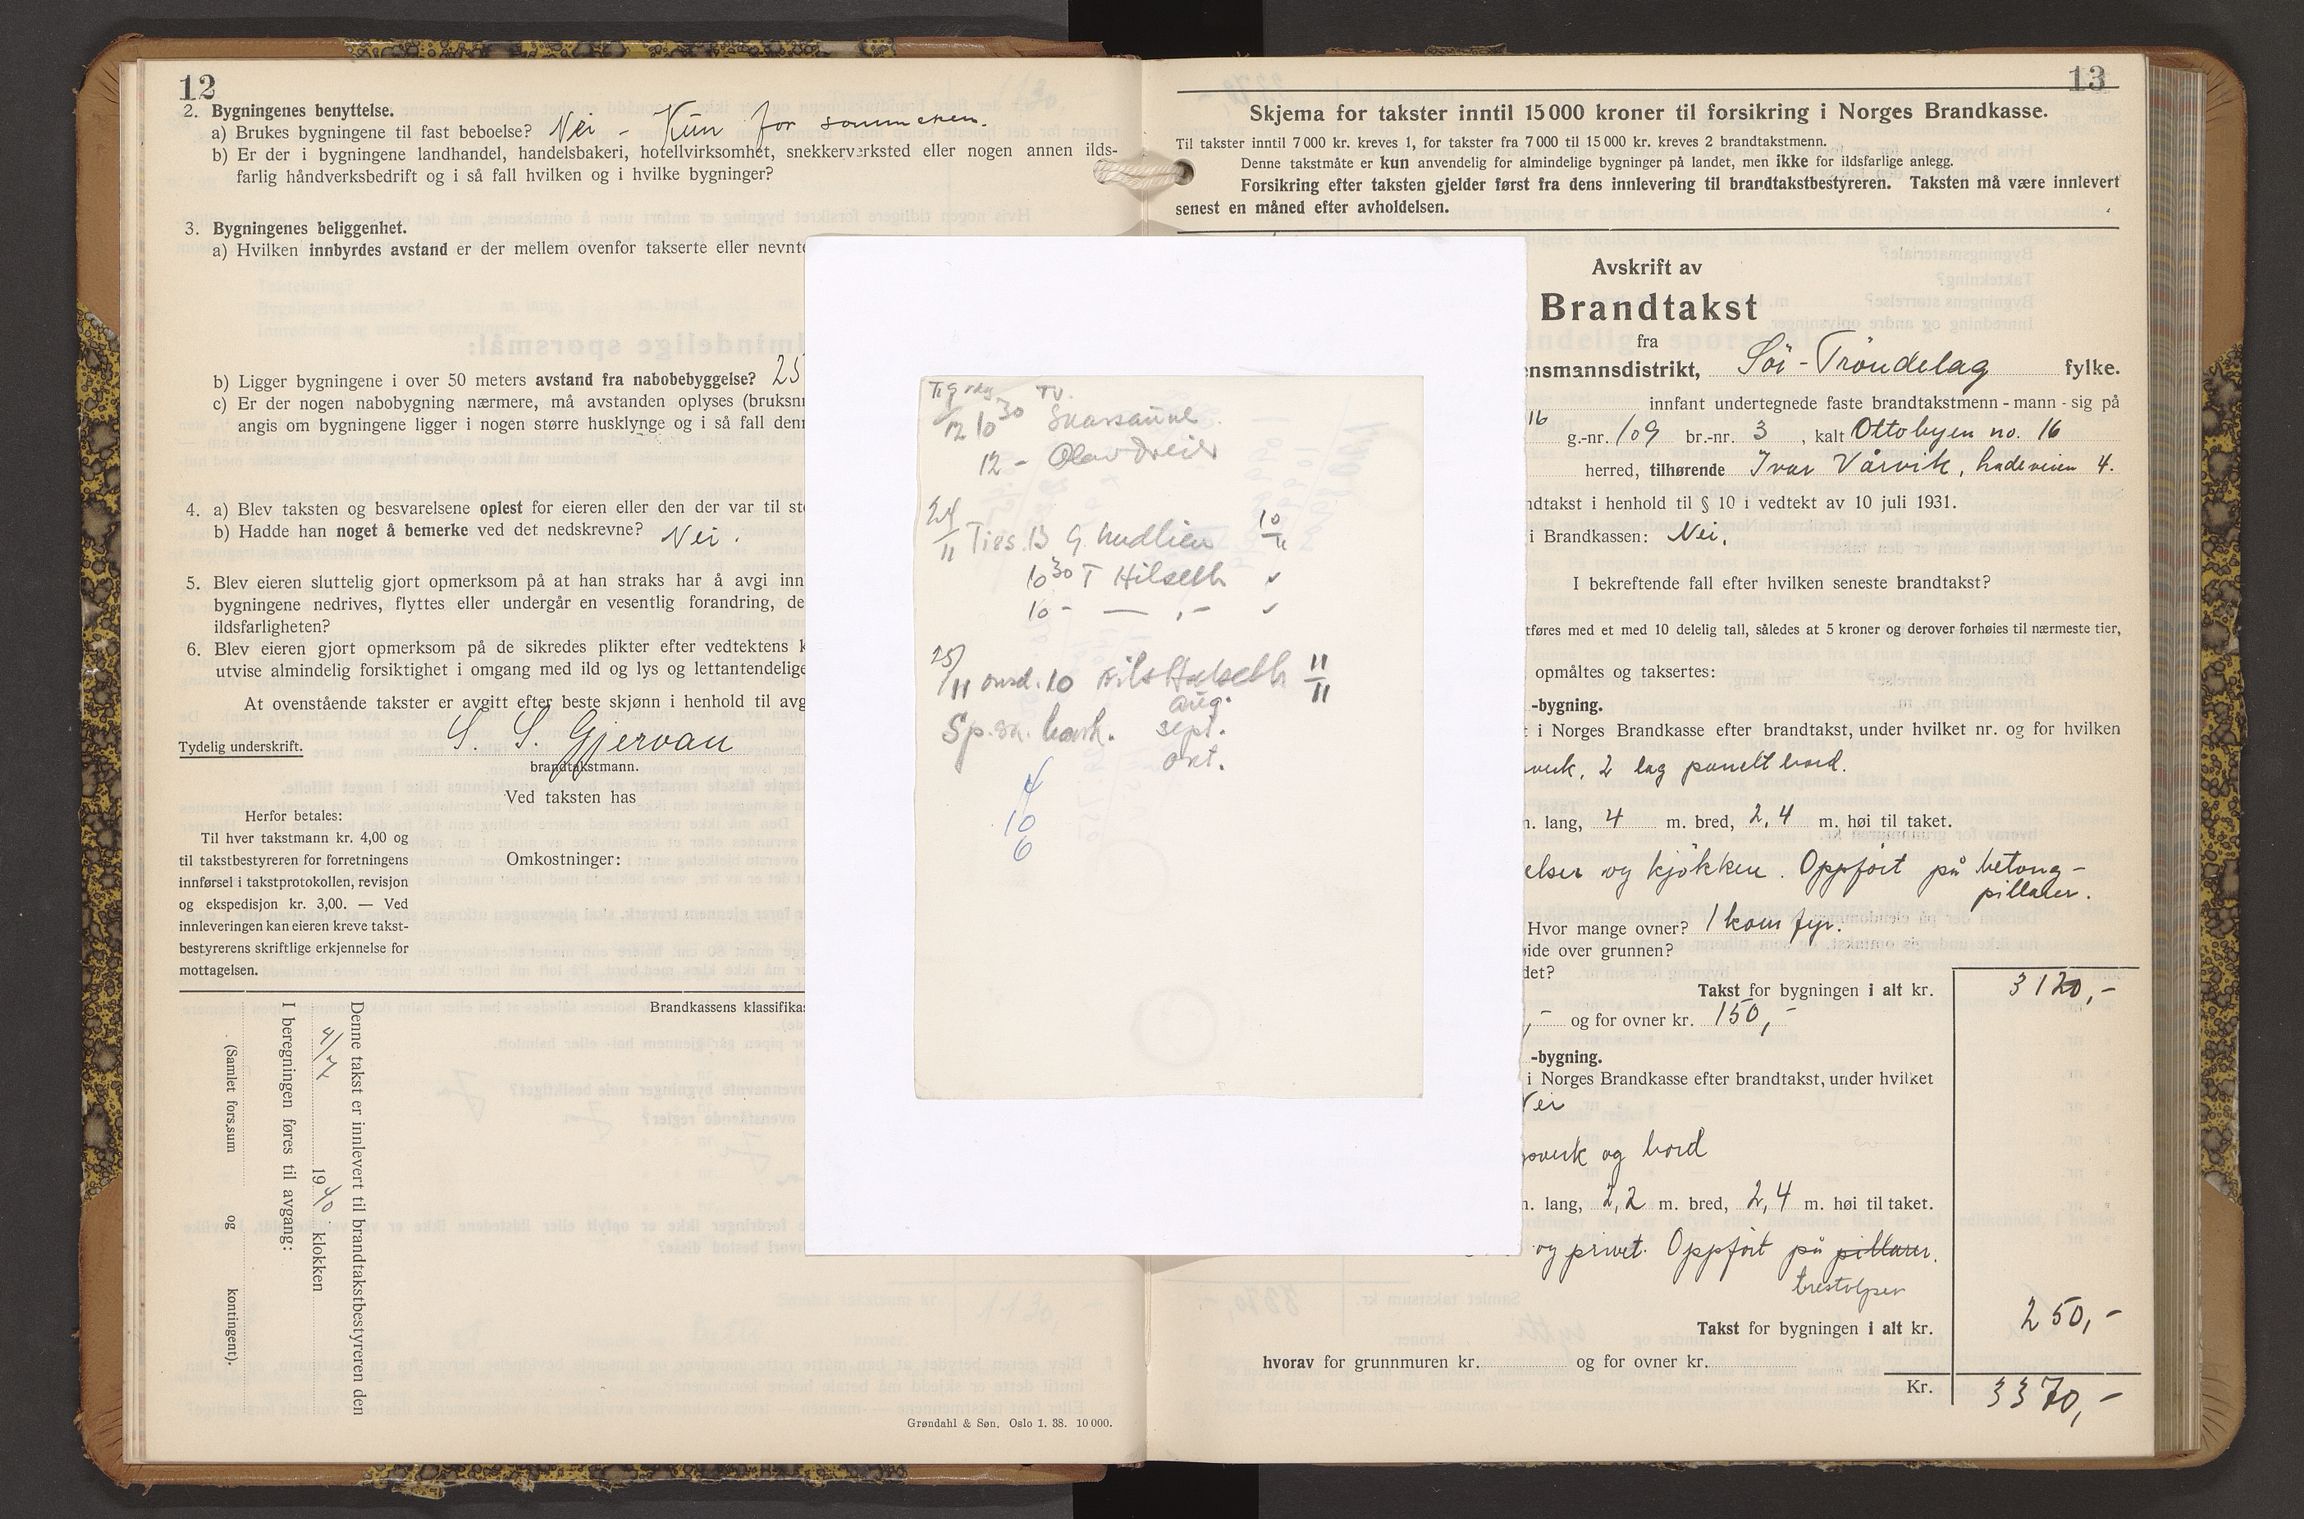 12
2. Bygningenes benyttelse.
a) Brukes bygningene til fast beboelse? Nei - Kun for sommeren.
b) Er der i bygningene landhandel, handelsbakeri, hotellvirksomhet, snekkerverksted eller nogen annen ilds-
farlig håndverksbedrift og i så fall hvilken og i hvilke bygninger?
3. Bygningenes beliggenhet.
a) Hvilken innbyrdes avstand er der mellem ovenfor takserte eller nevnte
b) Ligger bygningene i over 50 meters avstand fra nabobebyggelse? 25
c) Er der nogen nabobygning nærmere, må avstanden oplyses (bruksnr
angis om bygningene ligger i nogen større husklynge og i så fall denn
4. a) Blev taksten og besvarelsene oplest for eieren eller den der var til st
b) Hadde han noget å bemerke ved det nedskrevne? Nei.
5. Blev eieren sluttelig gjort opmerksom på at han straks har å avgi inn
bygningene nedrives, flyttes eller undergår en vesentlig forandring, de
ildsfarligheten?
6. Blev eieren gjort opmerksom på de sikredes plikter efter vedtektens k
utvise almindelig forsiktighet i omgang med ild og lys og lettantendelige
At ovenstående takster er avgitt efter beste skjønn i henhold til avg
Tydelig underskrift. S. S. Gjervan
brandtakstmann.
Ved taksten has
Herfor betales:
Til hver takstmann kr. 4,00 og
til takstbestyreren for forretningens
innførsel i takstprotokollen, revisjon
og ekspedisjon kr. 3,00. — Ved
innleveringen kan eieren kreve takst-
bestyrerens skriftlige erkjennelse for
mottagelsen.
Omkostninger:
Brandkassens klassifikas
Denne takst er innlevert til brandtakstbestyreren den
4/7 1940. klokken
I beregningen føres til avgang:
(Samlet fors.sum og kontingent).
Grøndahl & Søn. Oslo 1. 38. 10 000.
Tirsdag
12 10 30 Skarsaune
12 - Olav Dreier
24/11 Tirs. 13 G. Hudlien 10/11
10 30 T Hilseth
10 -
25/11 onsd. 10 Nils Halseth 11/11
aug.
Sp. sn. bank. sept.
okt.
4
10
6
13
Skjema for takster inntil 15 000 kroner til forsikring i Norges Brandkasse.
Til takster inntil 7 000 kr. kreves 1, for takster fra 7 000 til 15 000 kr. kreves 2 brandtakstmenn.
Denne takstmåte er kun anvendelig for almindelige bygninger på landet, men ikke for ildsfarlige anlegg.
Forsikring efter taksten gjelder først fra dens innlevering til brandtakstbestyreren. Taksten må være innlevert
senest en måned efter avholdelsen.
Avskrift av
Brandtakst
fra
ensmannsdistrikt, Sör-Tröndelag fylke.
16 innfant undertegnede faste brandtakstmenn - mann - sig på
g.-nr. 109 br.-nr. 3, kalt Ottobyen no. 16
herred, tilhørende Ivar Vårvik, Ladeveien 4.
ndtakst i henhold til § 10 i vedtekt av 10 juli 1931.
i Brandkassen: Nei.
I bekreftende fall efter hvilken seneste brandtakst?
tføres med et med 10 delelig tall, således at 5 kroner og derover forhøies til nærmeste tier,
opmåltes og taksertes:
-bygning.
t i Norges Brandkasse efter brandtakst, under hvilket nr. og for hvilken
verk, 2 lag panelt bord.
m. lang, 4 m. bred, 2,4 m. høi til taket.
elser og kjökken. Oppfört på betong-
pillarer.
Hvor mange ovner? 1 komfyr.
øide over grunnen?
det?
Takst for bygningen i alt kr. 3120,-
,- og for ovner kr. 150,-
-bygning.
i Norges Brandkasse efter brandtakst, under hvilket
Nei
gsverk og bord
m. lang, 2,2 m. bred, 2,4 m. høi til taket.
og privet. Oppfört på pillarer.
trestolper
Takst for bygningen i alt kr. 250,-
hvorav for grunnmuren kr. og for ovner kr.
Kr. 3370,-